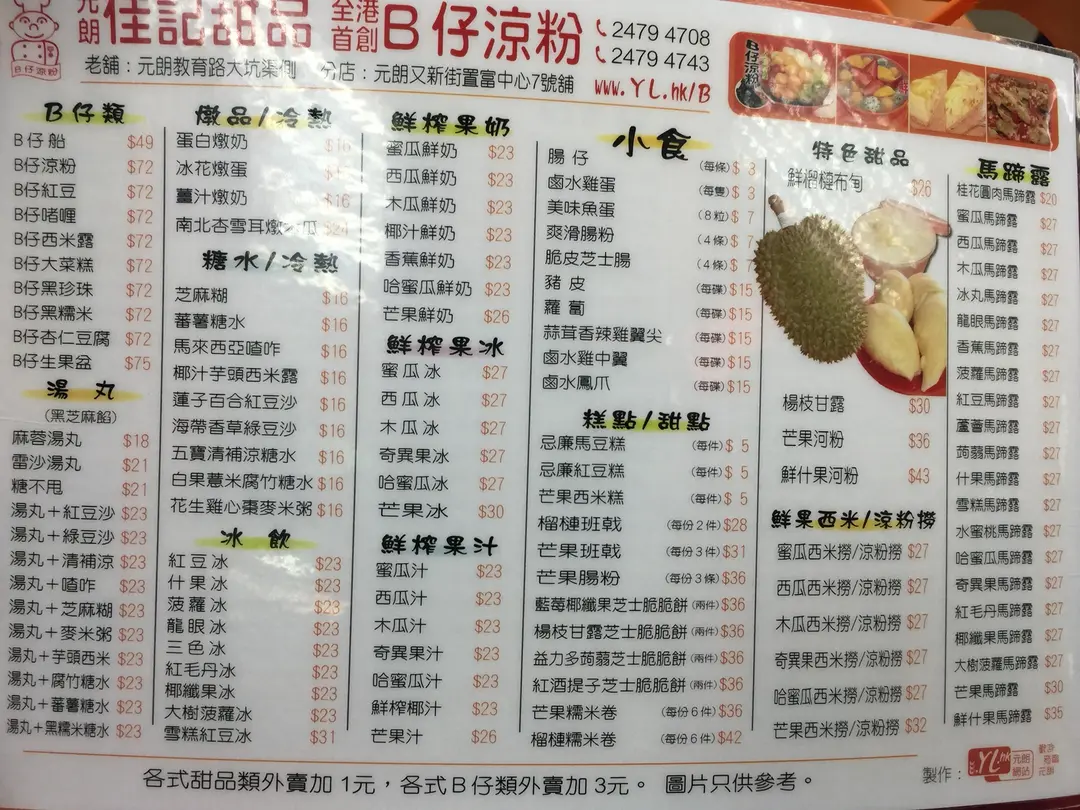 元朗 佳記甜品 全港首創 B仔涼粉 2479 4708
2479 4743
老舖：元朗教育路大坑渠側 分店：元朗又新街置富中心7號舖 www.YL.hk/B
B仔涼粉
B仔涼粉
B仔類
B仔船 $49
B仔涼粉 $72
B仔紅豆 $72
B仔啫喱 $72
B仔西米露 $72
B仔大菜糕 $72
B仔黑珍珠 $72
B仔黑糯米 $72
B仔杏仁豆腐 $72
B仔生果盆 $75
湯丸
(黑芝麻餡)
麻蓉湯丸 $18
雷沙湯丸 $21
糖不甩 $21
湯丸＋紅豆沙 $23
湯丸＋綠豆沙 $23
湯丸＋清補涼 $23
湯丸＋喳咋 $23
湯丸＋芝麻糊 $23
湯丸＋麥米粥 $23
湯丸＋芋頭西米 $23
湯丸＋腐竹糖水 $23
湯丸＋蕃薯糖水 $23
湯丸＋黑糯米糖水 $23
燉品/冷熱
蛋白燉奶 $16
冰花燉蛋
薑汁燉奶 $16
南北杏雪耳燉木瓜
糖水/冷熱
芝麻糊 $16
蕃薯糖水 $16
馬來西亞喳咋 $16
椰汁芋頭西米露 $16
蓮子百合紅豆沙 $16
海帶香草綠豆沙 $16
五寶清補涼糖水 $16
白果薏米腐竹糖水 $16
花生雞心棗麥米粥 $16
冰飲
紅豆冰 $23
什果冰 $23
菠蘿冰 $23
龍眼冰 $23
三色冰 $23
紅毛丹冰 $23
椰纖果冰 $23
大樹菠蘿冰 $23
雪糕紅豆冰 $31
鮮榨果奶
蜜瓜鮮奶 $23
西瓜鮮奶 $23
木瓜鮮奶 $23
椰汁鮮奶 $23
香蕉鮮奶 $23
哈蜜瓜鮮奶 $23
芒果鮮奶 $26
鮮榨果冰
蜜瓜冰 $27
西瓜冰 $27
木瓜冰 $27
奇異果冰 $27
哈蜜瓜冰 $27
芒果冰 $30
鮮榨果汁
蜜瓜汁 $23
西瓜汁 $23
木瓜汁 $23
奇異果汁 $23
哈蜜瓜汁 $23
鮮榨椰汁 $23
芒果汁 $26
小食
腸仔 (每條) $ 3
鹵水雞蛋 (每隻) $ 3
美味魚蛋 (8粒) $ 7
爽滑腸粉 (4條) $ 7
脆皮芝士腸 (4條) $ 7
豬皮 (每碟) $15
蘿蔔 (每碟) $15
蒜茸香辣雞翼尖 (每碟) $15
鹵水雞中翼 (每碟) $15
鹵水鳳爪 (每碟) $15
糕點/甜點
忌廉馬豆糕 (每件) $ 5
忌廉紅豆糕 (每件) $ 5
芒果西米糕 (每件) $ 5
榴槤班戟 (每份2件) $28
芒果班戟 (每份3件) $31
芒果腸粉 (每份3條) $36
藍莓椰纖果芝士脆脆餅 (兩件) $36
楊枝甘露芝士脆脆餅 (兩件) $36
益力多蒟蒻芝士脆脆餅 (兩件) $36
紅酒提子芝士脆脆餅 (兩件) $36
芒果糯米卷 (每份6件) $36
榴槤糯米卷 (每份6件) $42
特色甜品
鮮榴槤布甸 $26
楊枝甘露 $30
芒果河粉 $36
鮮什果河粉 $43
鮮果西米/涼粉撈
蜜瓜西米撈/涼粉撈 $27
西瓜西米撈/涼粉撈 $27
木瓜西米撈/涼粉撈 $27
奇異果西米撈/涼粉撈 $27
哈蜜瓜西米撈/涼粉撈 $27
芒果西米撈/涼粉撈 $32
馬蹄露
桂花圓肉馬蹄露 $20
蜜瓜馬蹄露 $27
西瓜馬蹄露 $27
木瓜馬蹄露 $27
冰丸馬蹄露 $27
龍眼馬蹄露 $27
香蕉馬蹄露 $27
菠蘿馬蹄露 $27
紅豆馬蹄露 $27
蘆薈馬蹄露 $27
蒟蒻馬蹄露 $27
什果馬蹄露 $27
雪糕馬蹄露 $27
水蜜桃馬蹄露 $27
哈蜜瓜馬蹄露 $27
奇異果馬蹄露 $27
紅毛丹馬蹄露 $27
椰纖果馬蹄露 $27
大樹菠蘿馬蹄露 $27
芒果馬蹄露 $30
鮮什果馬蹄露 $35
各式甜品類外賣加 1元，各式B仔類外賣加 3元。 圖片只供參考。
製作： YL.hk 元朗網站